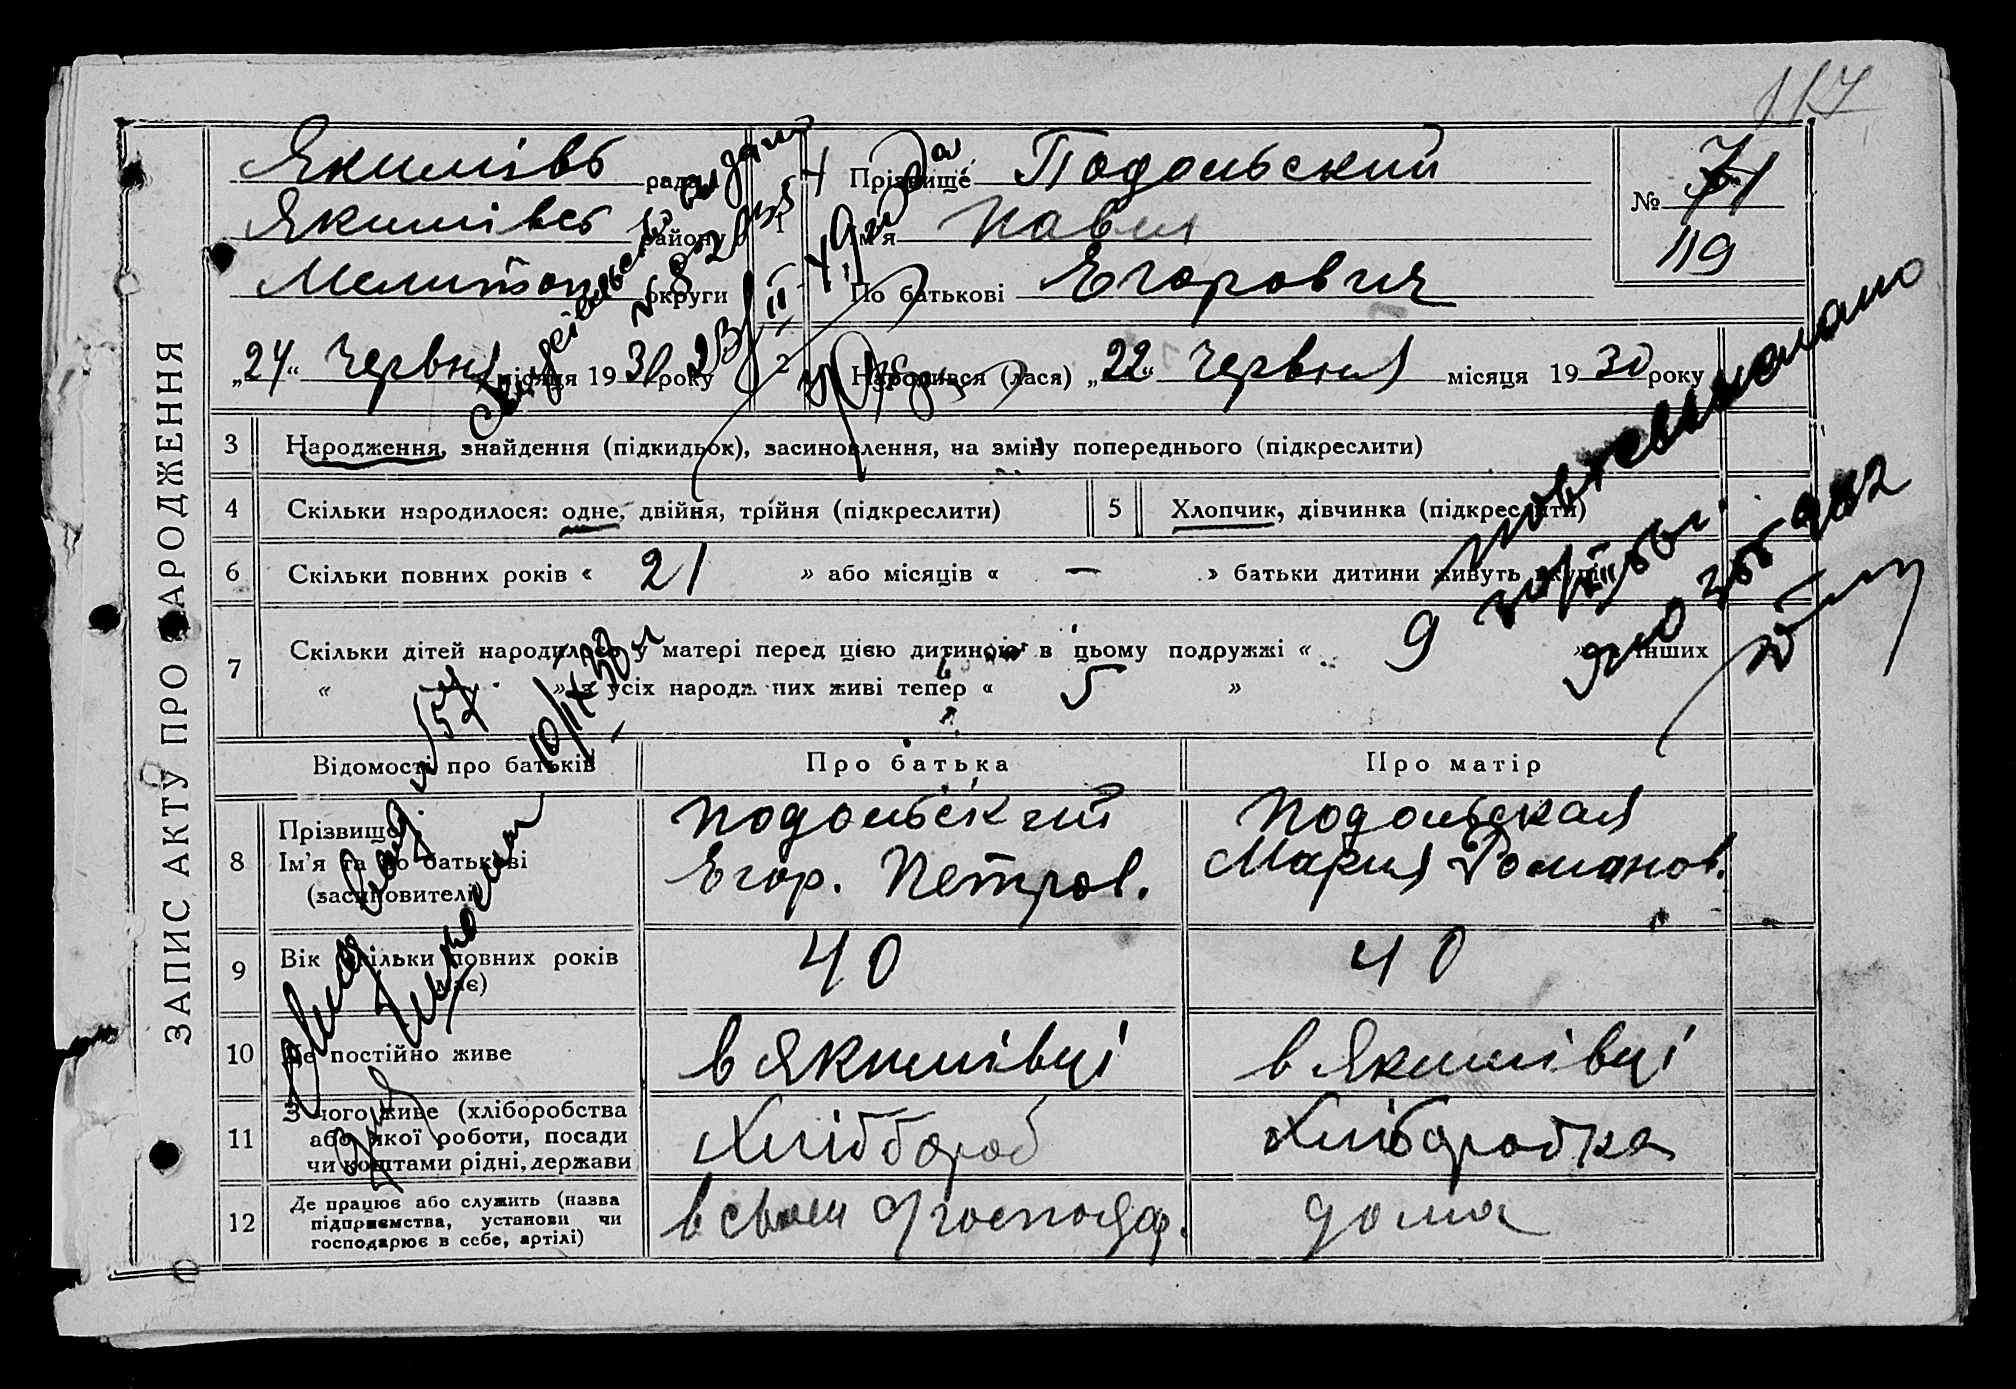 117
ЗАПИС АКТУ ПРО НАРОДЖЕННЯ
Якимівс рада
Якимівс району
Мелитоп округи
„24“ Червня місяця 1930 року
1 Прізвище Подольский
Ім'я Павел
По батькові Егорович
№ 71
119
2 Народився (лася) „22“ Червня місяця 1930 року
3 Народження, знайдення (підкидьок), засиновлення, на зміну попереднього (підкреслити)
4 Скільки народилося: одне, двійня, трійня (підкреслити)
5 Хлопчик, дівчинка (підкреслити)
6 Скільки повних років « 21 » або місяців « — » батьки дитини живуть вкупі
7 Скільки дітей народилось у матері перед цією дитиною в цьому подружжі « 9 » в інших
« » Із усіх народжених живі тепер « 5 »
Відомості про батьків
Про батька
Про матір
8 Прізвище
Ім'я та по батькові
(засиновителі)
Подольский
Егор. Петров.
Подольская
Мария Романов.
9 Вік (скільки повних років
має)
40
40
10 Де постійно живе
в Якимівці
в Якимівці
11 З чого живе (хліборобства
або якої роботи, посади
чи коштами рідні, держави
Хлібороб
Хліборобка
12 Де працює або служить (назва
підприємства, установи чи
господарює в себе, артілі)
в своем господар.
дома